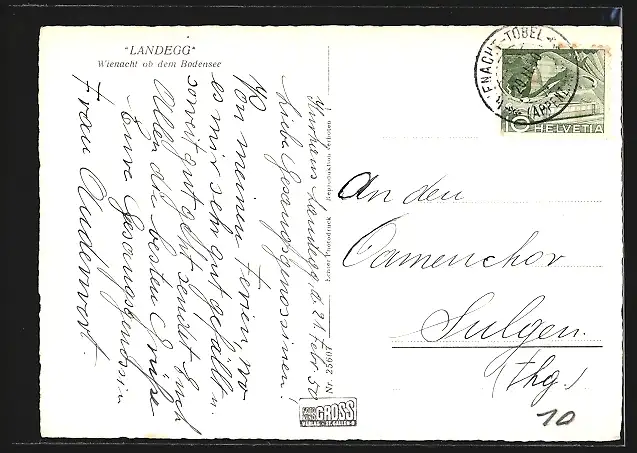 "LANDEGG"
Wienacht ob dem Bodensee
Kurhaus Landegg, d. 21. Febr. 50
Liebe Gesangsgenossinen!
Von meinen Ferien, wo
es mir sehr gut gefällt u.
soweit gut geht sendet Euch
Allen die besten Grüsse
Eure Gesangsgenossin
Frau
Echter Photodruck Reproduktion verboten
Nr. 25607
GROSS
VERLAG ST. GALLEN
WIENACHT-TOBEL
(APPENZ.)
10 HELVETIA
An den
Damenchor
Sulgen.
(Thg.)
10